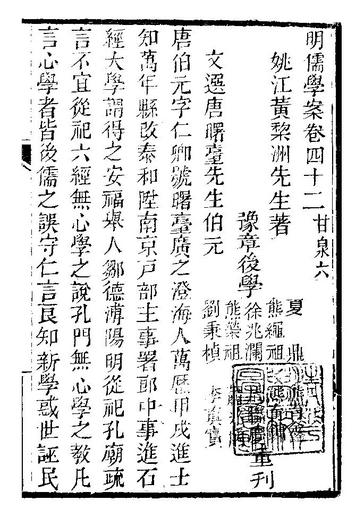 明儒學案卷四十二 甘泉六
姚江黃棃洲先生著
夏 鼎
熊繩祖
豫章後學
徐兆瀾
熊榮祖
重刊
劉秉楨
李真實
文選唐曙臺先生伯元
唐伯元字仁卿號曙臺廣之澄海人萬歷甲戌進士
知萬年縣改泰和陞南京戶部主事署郎中事進石
經大學謂得之安福舉人鄒德溥陽明從祀孔廟疏
言不宜從祀六經無心學之說孔門無心學之教凡
言心學者皆後儒之誤守仁言良知新學惑世誣民